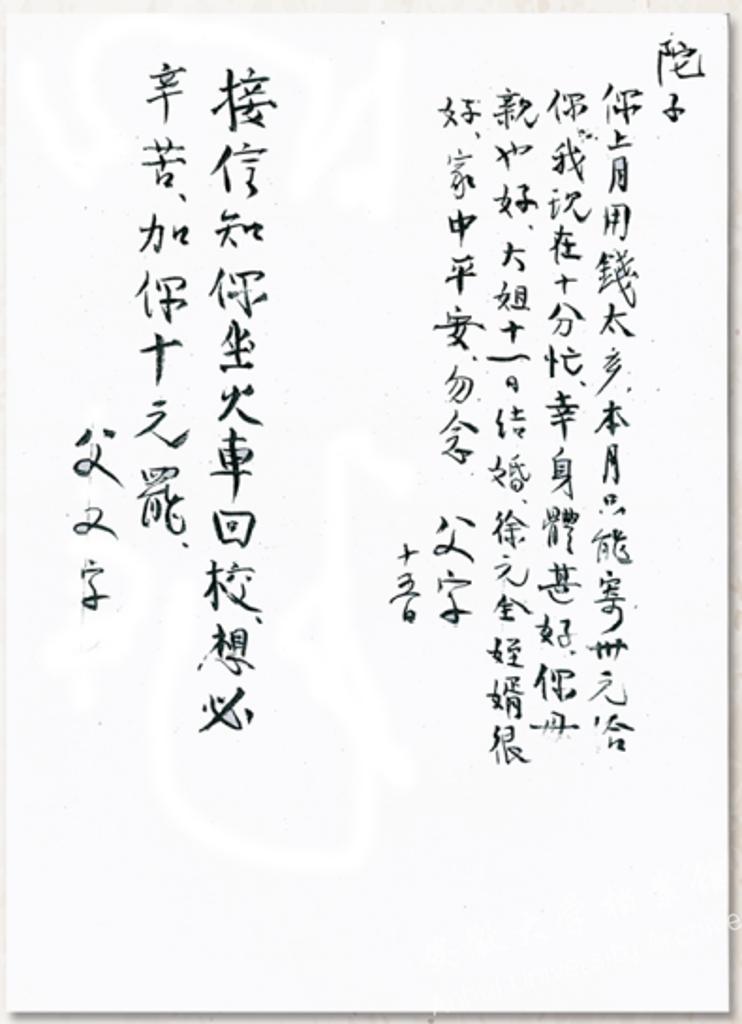 陀子
你上月用錢太多,本月只能寄卅元給
你。我現在十分忙、幸身體甚好、你母
親也好、大姐十一日結婚、徐元全姪婿很
好、家中平安、勿念 父字
十五日
接信知你坐火車回校、想必
辛苦、加你十元罷、
父又字
Anhui University Archive